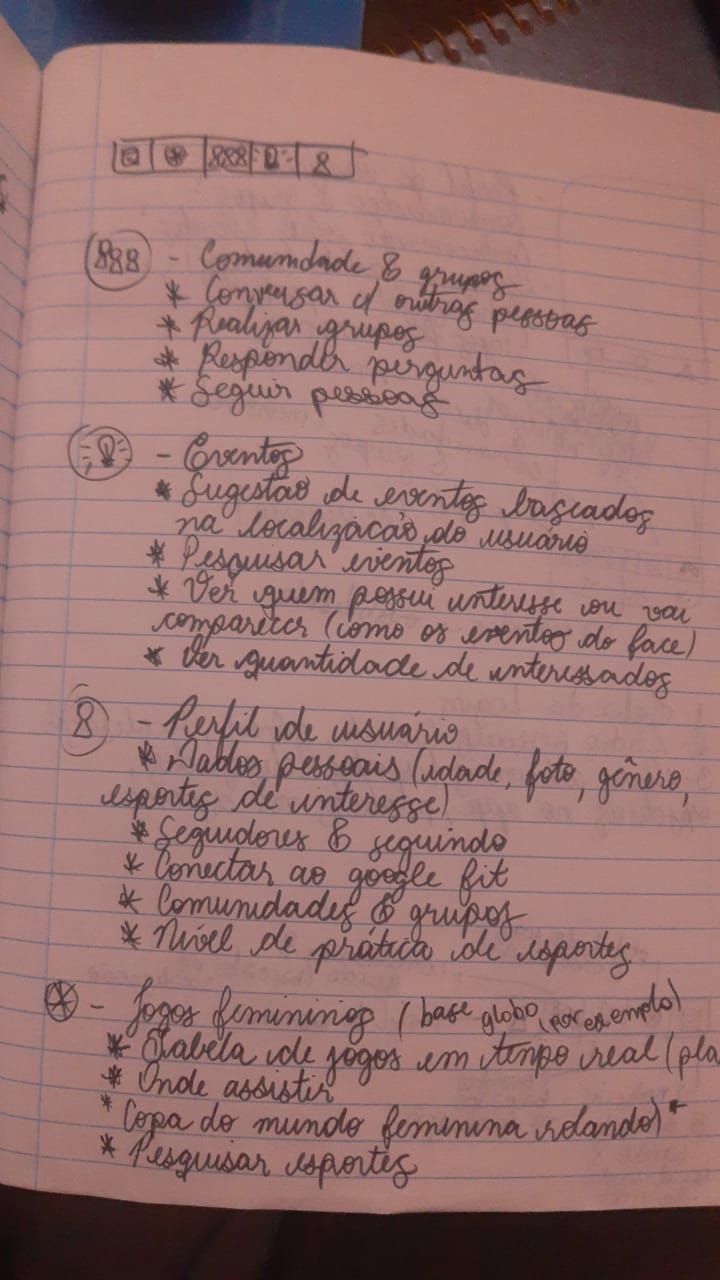 - Comunidade & grupos
* Conversar c/ outras pessoas
* Realizar grupos
* Responder perguntas
* Seguir pessoas
- Eventos
* Sugestão de eventos baseados
na localização do usuário
* Pesquisar eventos
* Ver quem possui interesse ou vai
comparecer (como os eventos do face)
* Ver quantidade de interessados
- Perfil de usuário
* Dados pessoais (idade, foto, gênero,
esportes de interesse)
* Seguidores & seguindo
* Conectar ao google fit
* Comunidades & grupos
* Nível de prática de esportes
- Jogos femininos (base globo, (por exemplo)
* Tabela de jogos em tempo real (pla
* Onde assistir
* Copa do mundo feminina rolando)
* Pesquisar esportes